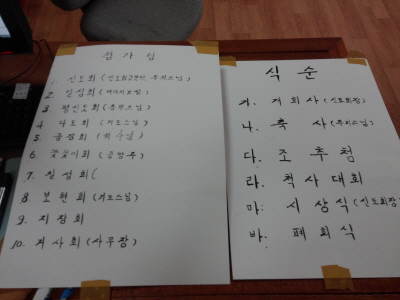 심 사 심
1. 신도회 (신도회고문단, 주지스님)
2. 일성회
3. 평신도회 (총무스님)
4. 다도회 (지도스님)
5. 합창회
6. 꽃꽂이회 (공양주)
7. 진성회 (
8. 보현회 (지도스님)
9. 지장회
10. 거사회 (사무장)
식 순
가. 개회사 (신도회장)
나. 축 사 (주지스님)
다. 조 추 첨
라. 척 사 대 회
마. 시 상 식 (신도회장)
바. 폐 회 식